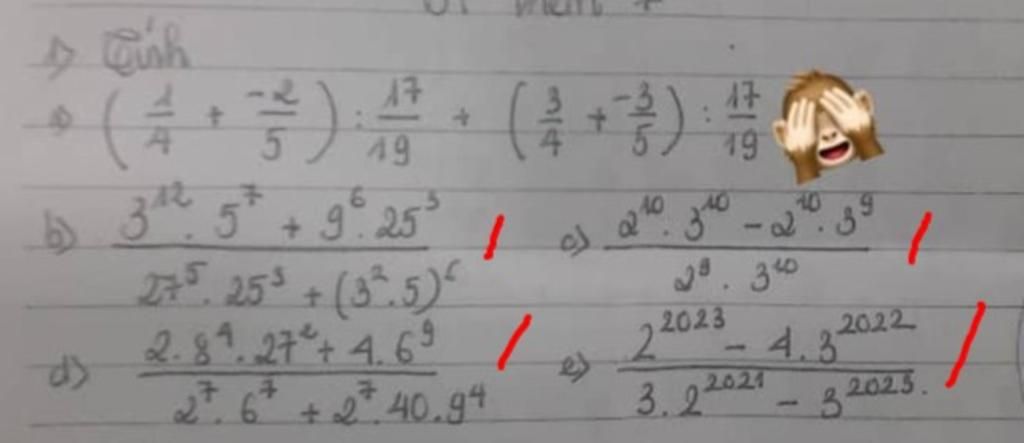 1) Tính
a) (1/4 + -2/5) : 17/19 + (3/4 + -3/5) : 17/19
b) (3^12 . 5^7 + 9^6 . 25^3) / (27^5 . 25^3 + (3^2 . 5)^6) c) (2^10 . 3^10 - 2^10 . 3^9) / (2^9 . 3^10)
d) (2 . 8^4 . 27^2 + 4 . 6^9) / (2^7 . 6^7 + 2^7 . 40 . 9^4) e) (2^2023 - 4 . 3^2022) / (3 . 2^2021 - 3^2023 .)